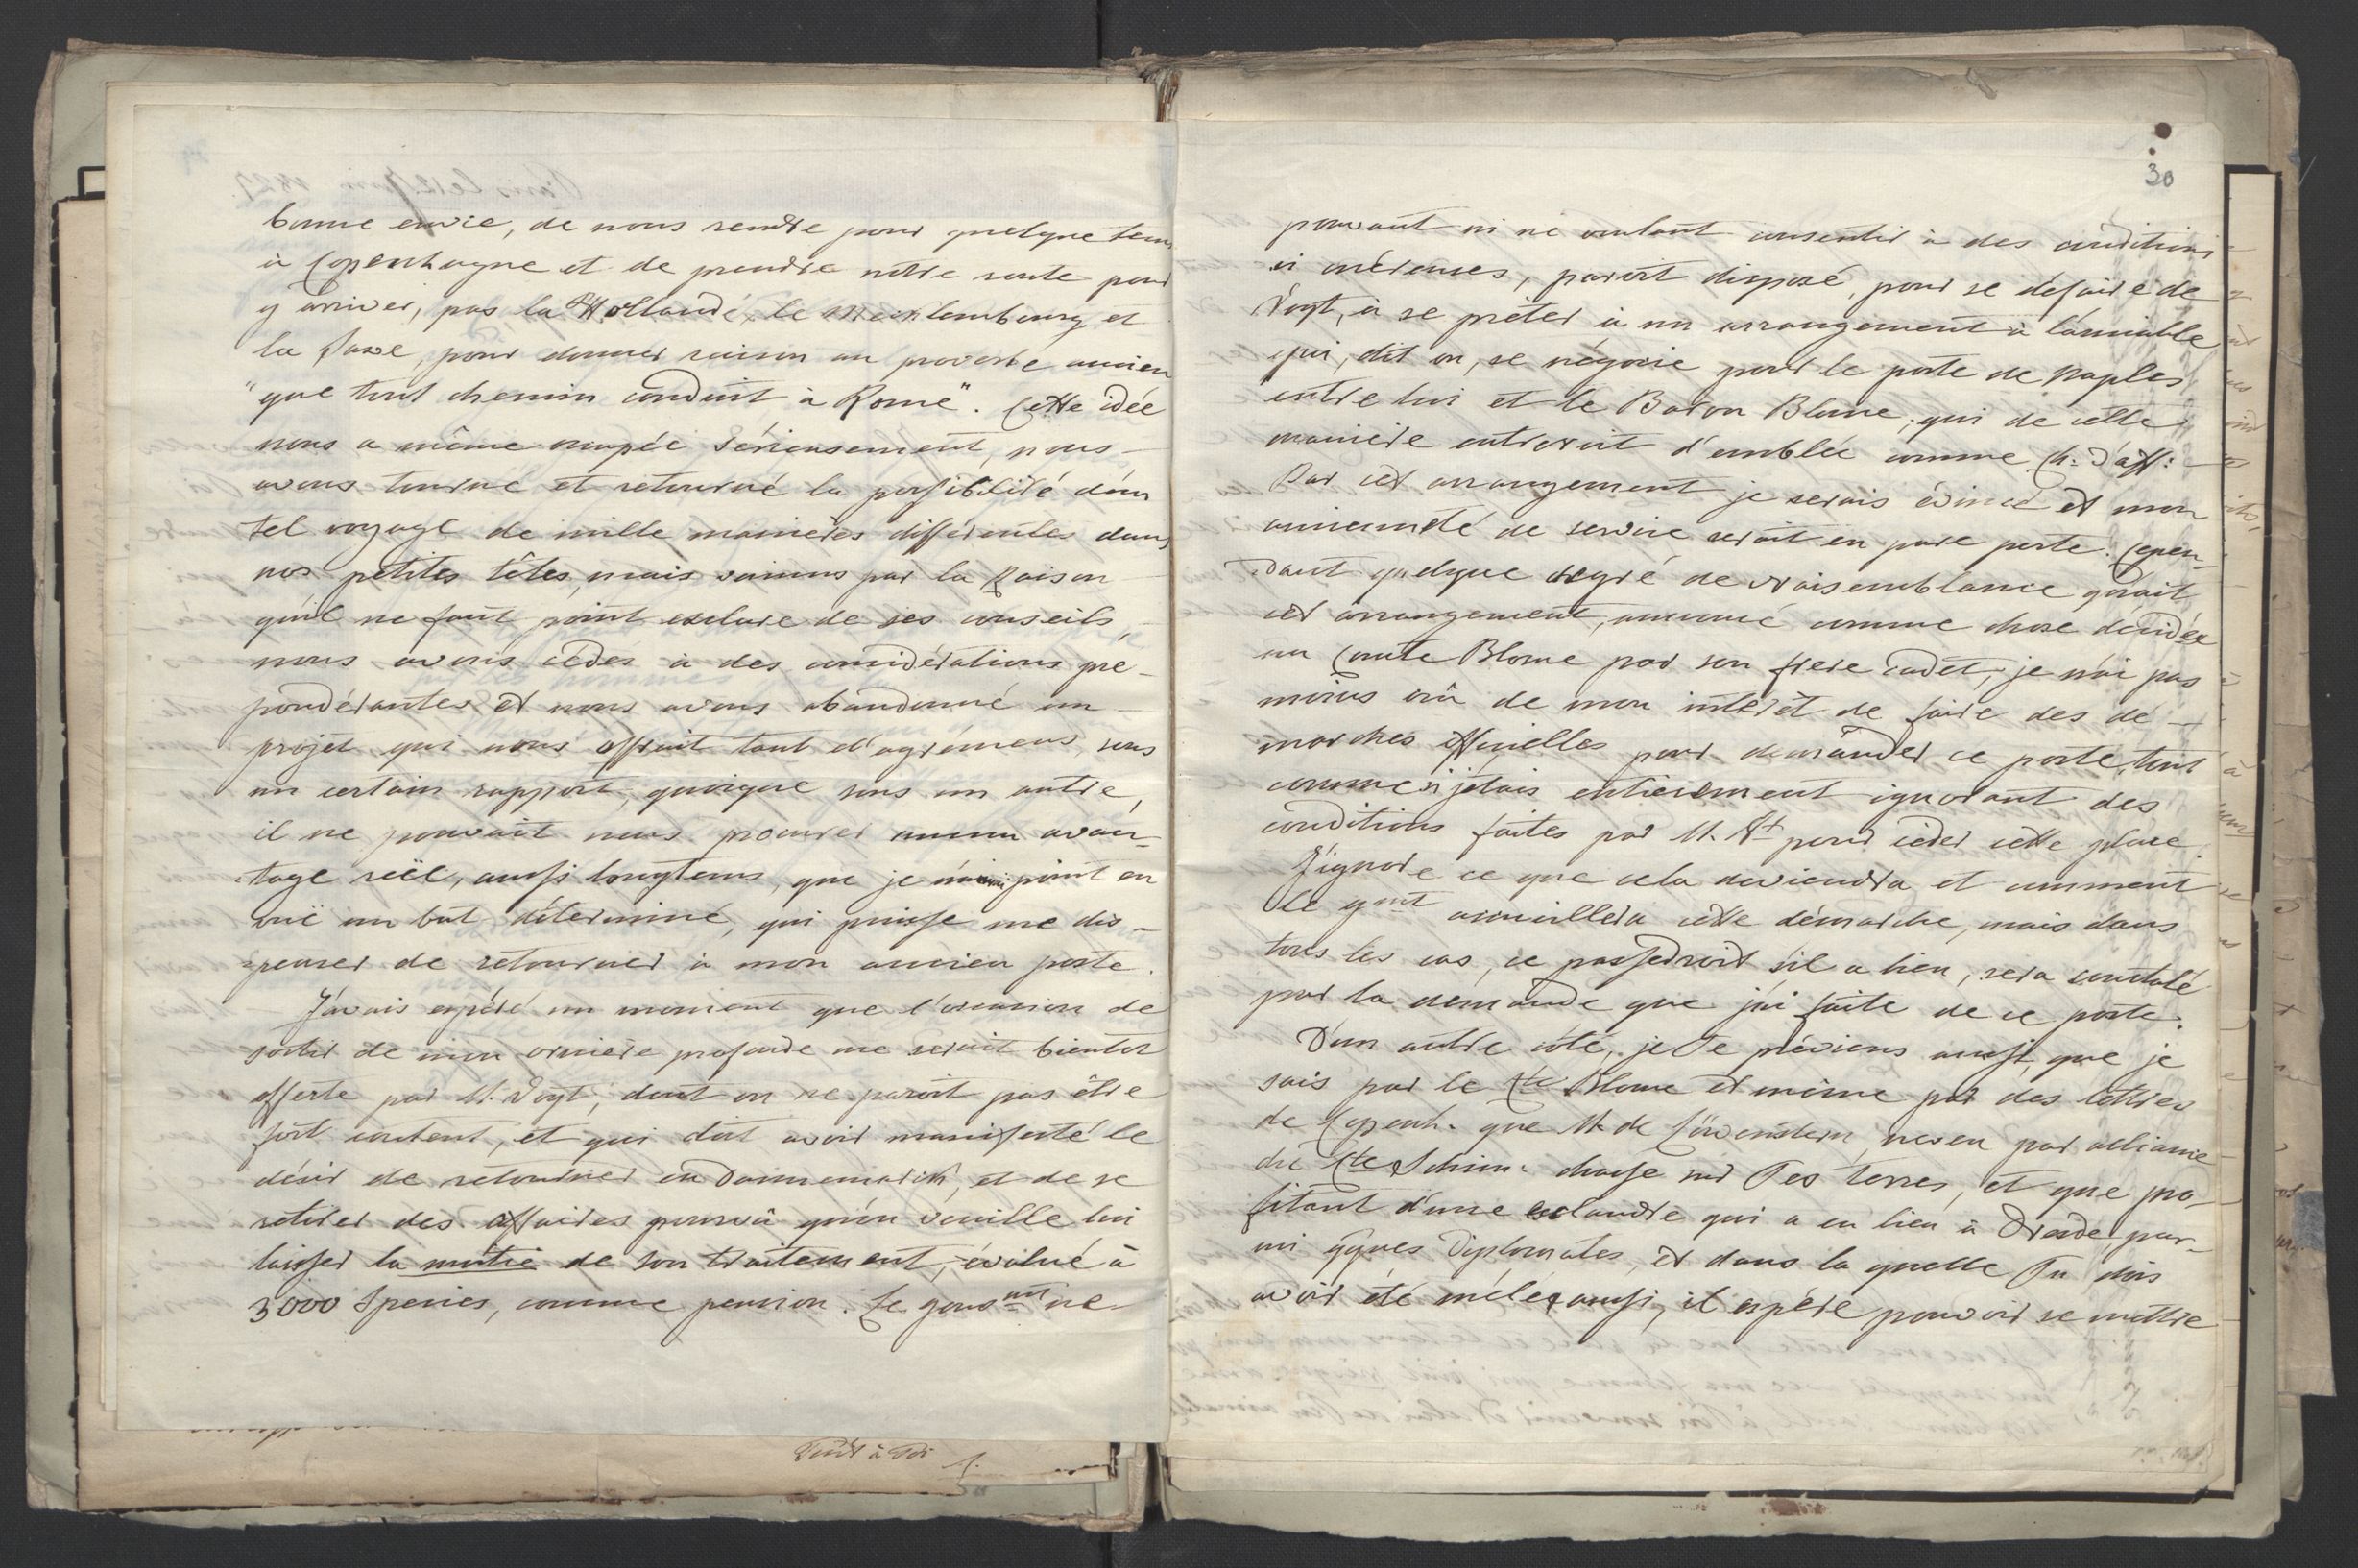 bonne envie, de nous rendre pour quelque tems
à Copenhague et de prendre nôtre route pour
y arriver, par la Hollande, le Mecklembourg et
la Saxe, pour donner raison au proverbe ancien
"que tout chemin conduit à Rome". Cette idée
nous a même occupée sérieusement, nous
avons tourné et retourné la possibilité d'un
tel voyage de mille manieres différentes dans
nos petites têtes, mais vaincus par la Raison
qu'il ne faut point exclure de ses conseils,
nous avons cédés à des considérations pré-
pondérantes et nous avons abandonné un
projet qui nous offroit tant d'agrémens, sous
un certain rapport, quoique sous un autre,
il ne pouvait nous procurer aucun avan-
tage réel, aussi longtems, que je n'ai point en
vuë un but déterminé, qui puisse me dis-
penser de retourner à mon ancien poste.
J'avais espéré un moment que l'occasion de
sortir de mon orniere profonde me serait bientot
offerte par M. Vogt, dont on ne paroit pas être
fort content, et qui doit avoir manifesté le
désir de retourner en Dannemarck, et de se
retirer des affaires pourvû qu'on veuille lui
laisser la moitié de son traitement, évalué à
3000 Species, comme pension. Le gouvmt ne
30
pouvant ni ne voulant consentir à des conditions
si onéreuses, paroit disposé, pour se défaire de
Vogt, à se prêter à un arrangement à l'amiable
qui, dit on, se négocie pour le poste de Naples
entre lui et le Baron Blome, qui de cette
maniere entreroit d'emblée comme Ch. d'aff:
Par cet arrangement je serais évincé et mon
ancienneté de service seroit en pure perte. Cepen-
dant quelque degré de vraisemblance qu'ait
cet arrangement, annoncé comme chose décidée
au Comte Blome par son frere cadet, je n'ai pas
moins crû de mon intérêt de faire des dé-
marches officielles pour demander ce poste, tout
comme si j'étais entierement ignorant des
conditions faites par M. Vt pour céder cette place.
J'ignore ce que cela deviendra et comment
le gmt accueillera cette démarche, mais dans
tous les cas, ce passedroit s'il a lieu, sera constaté
par la demande que j'ai faite de ce poste.
D'un autre côté, je Te préviens aussi, que je
sais par le Cte Blome et même par des lettres
de Copenh. que M. de Löwenstern, neveu par alliance
du Cte Schim. chasse sur Tes terres, et que pro-
fitant d'une esclandre qui a eu lieu à Dresde par-
mi qques Diplomates, et dans la quelle Tu dois
avoir été mêlé aussi, il espère pouvoir se mettre